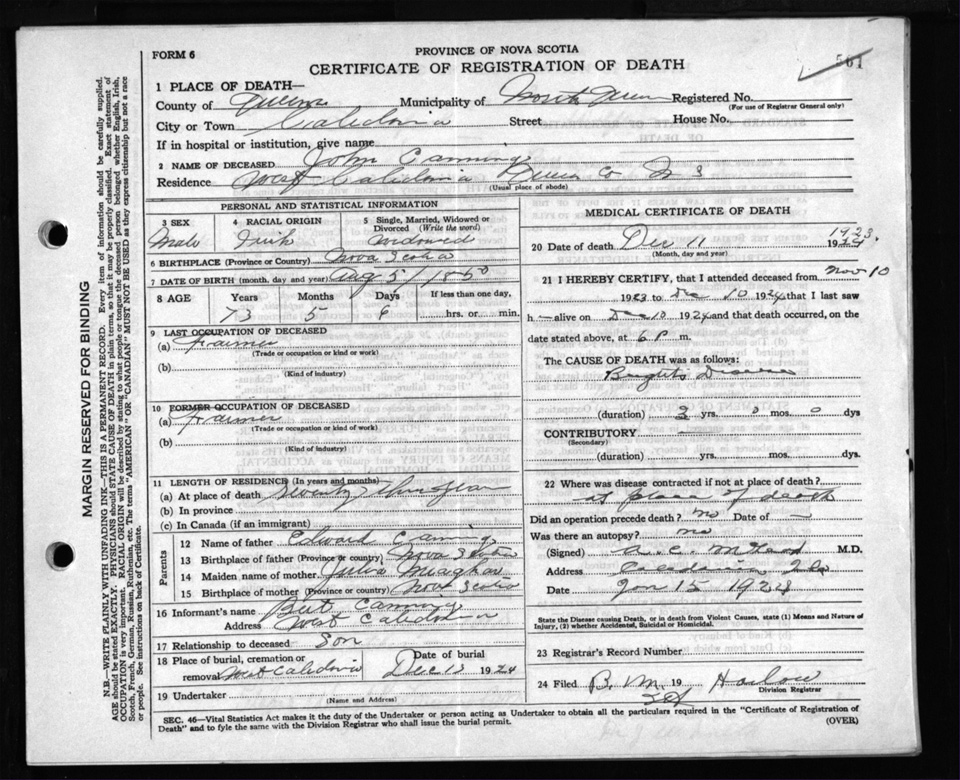 FORM 6
PROVINCE OF NOVA SCOTIA
CERTIFICATE OF REGISTRATION OF DEATH
561
1 PLACE OF DEATH—
County of Queens Municipality of North Queens Registered No.
(For use of Registrar General only)
City or Town Caledonia Street House No.
If in hospital or institution, give name
2 NAME OF DECEASED John Canning
Residence West Caledonia Queens Co N S
(Usual place of abode)
PERSONAL AND STATISTICAL INFORMATION
3 SEX 4 RACIAL ORIGIN 5 Single, Married, Widowed or Divorced (Write the word)
Male Irish Widowed
6 BIRTHPLACE (Province or Country) Nova Scotia
7 DATE OF BIRTH (month, day and year) Aug 5/1850
8 AGE Years Months Days If less than one day,
73 5 6 hrs. or min.
9 LAST OCCUPATION OF DECEASED
(a) Farmer
(Trade or occupation or kind of work)
(b)
(Kind of industry)
10 FORMER OCCUPATION OF DECEASED
(a) Farmer
(Trade or occupation or kind of work)
(b)
(Kind of industry)
11 LENGTH OF RESIDENCE (In years and months)
(a) At place of death Seventy Three years
(b) In province
(c) In Canada (if an immigrant)
Parents
12 Name of father Edward Canning
13 Birthplace of father (Province or country) Nova Scotia
14 Maiden name of mother Julia Meagher
15 Birthplace of mother (Province or country) Nova Scotia
16 Informant's name Bert Canning
Address West Caledonia
17 Relationship to deceased Son
18 Place of burial, cremation or removal West Caledonia Date of burial Dec 13 1924
19 Undertaker
(Name and Address)
MEDICAL CERTIFICATE OF DEATH
20 Date of death Dec 11 1923
(Month, day and year)
21 I HEREBY CERTIFY, that I attended deceased from Nov 10
1923 to Dec 10 1924 that I last saw
h — alive on Dec 10 1924 and that death occurred, on
date stated above, at 6 P m.
The CAUSE OF DEATH was as follows:
Brights Disease
(duration) 3 yrs. 0 mos. 0 dys
CONTRIBUTORY —
(Secondary)
(duration) yrs. mos. dys.
22 Where was disease contracted if not at place of death?
at place of death
Did an operation precede death? no Date of —
Was there an autopsy? no
(Signed) A. C. M.D.
Address Caledonia
Date Jan 15 1924
State the Disease causing Death, or in death from Violent Causes, state (1) Means and Nature of Injury, (2) whether Accidental, Suicidal or Homicidal.
23 Registrar's Record Number
24 Filed B. M. 19 Harlow
Division Registrar
SEC. 46—Vital Statistics Act makes it the duty of the Undertaker or person acting as Undertaker to obtain all the particulars required in the "Certificate of Registration of
Death" and to fyle the same with the Division Registrar who shall issue the burial permit.
(OVER)
MARGIN RESERVED FOR BINDING
N.B.—WRITE PLAINLY WITH UNFADING INK—THIS IS A PERMANENT RECORD. Every item of information should be carefully supplied.
AGE should be stated EXACTLY. PHYSICIANS should STATE CAUSE OF DEATH in plain terms, so that it may be properly classified. Exact statement of
OCCUPATION is very important. RACIAL ORIGIN will be described by stating to what people or tongue the deceased person belonged whether English, Irish,
Scotch, French, German, Russian, Ruthenian, etc. The terms "AMERICAN" OR "CANADIAN" MUST NOT BE USED as they express citizenship but not a race
or people. See instructions on back of Certificate.